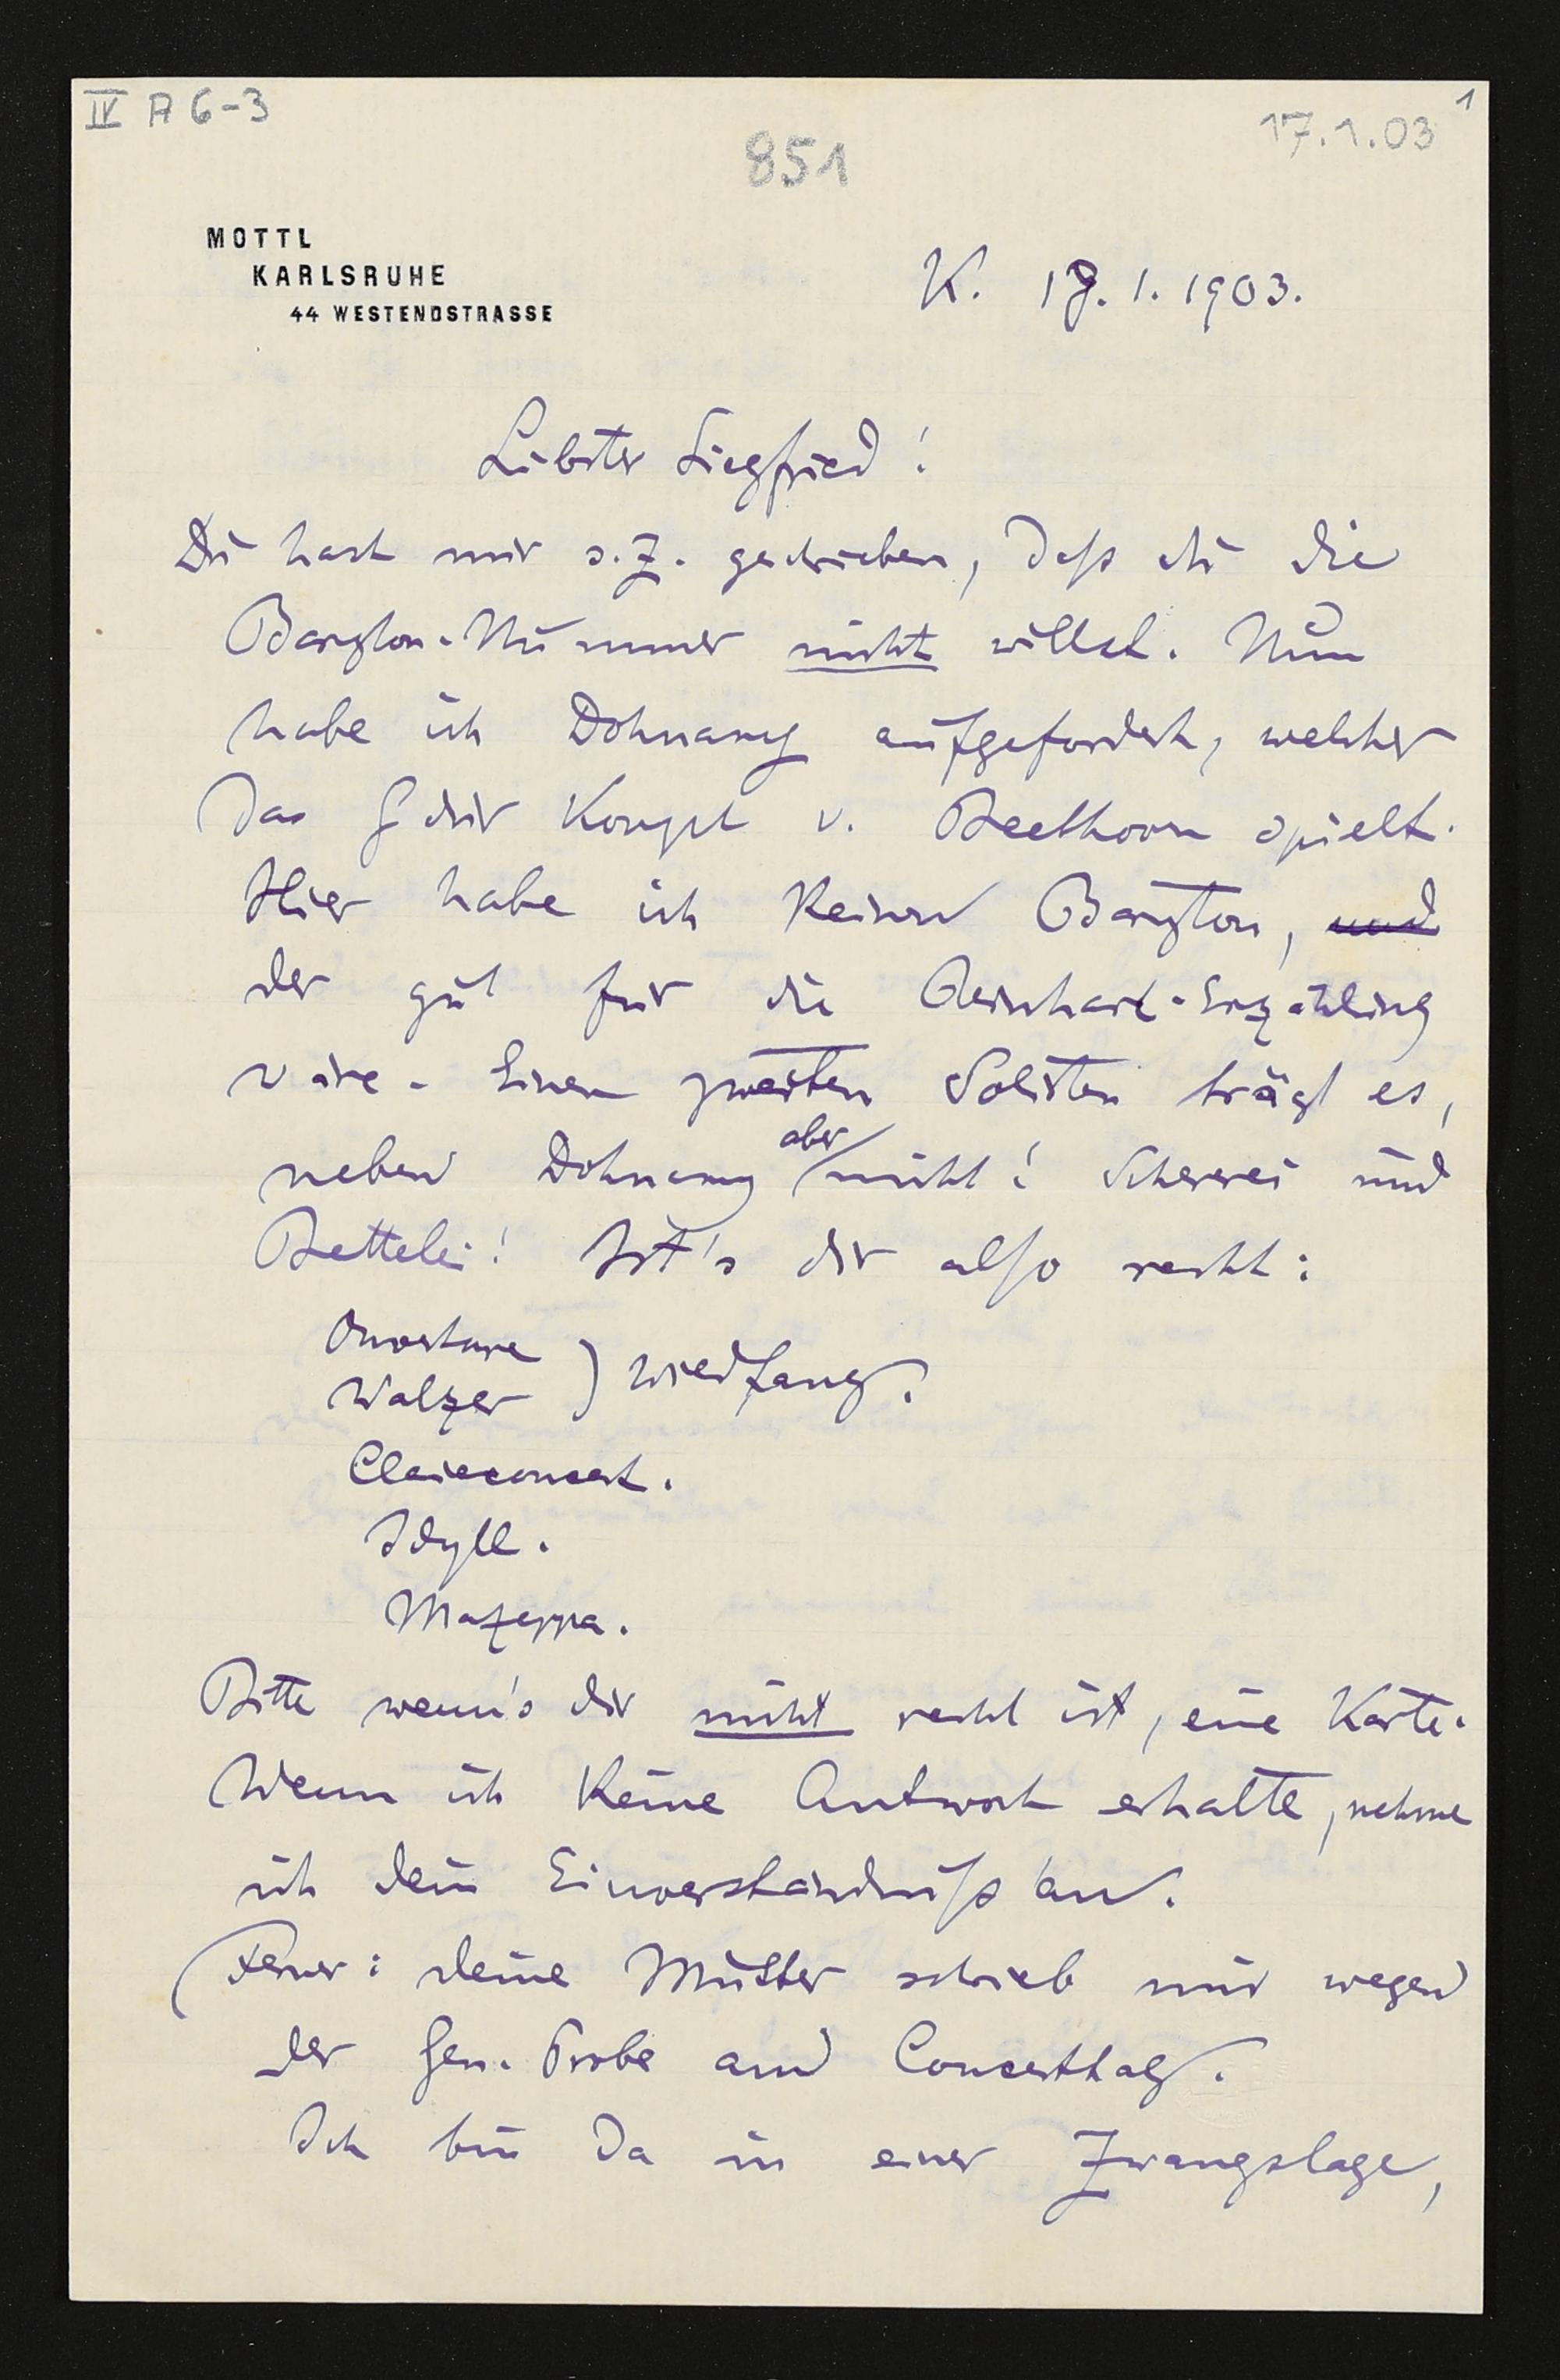 IV A 6-3
17.1.03
1
851
MOTTL
KARLSRUHE
44 WESTENDSTRASSE
K. 17.1.1903.
Liebster Siegfried!
Du hast mir s.Z. geschrieben, daß du die
Baryton-Nummer nicht willst. Nun
habe ich Dohnany aufgefordert, welcher
das G dur Konzert v. Beethoven spielt.
Hier habe ich keinen Baryton, und
der gut für die Reinhart-Erzählung
wäre. Einen zweiten Solisten trägt es,
neben Dohnany aber nicht! Scherrei und
Bettelei! Ist's dir also recht:
Ouverture
Walzer ) Wildfang.
Clavierconcert.
Idyll.
Mazeppa.
Bitte wenn's dir nicht recht ist, eine Karte.
Wenn ich keine Antwort erhalte, nehme
ich dein Einverständniß an.
(Ferner: deine Mutter schrieb mir wegen
der Gen. Probe am Concerttag.
Ich bin da in einer Zwangslage,